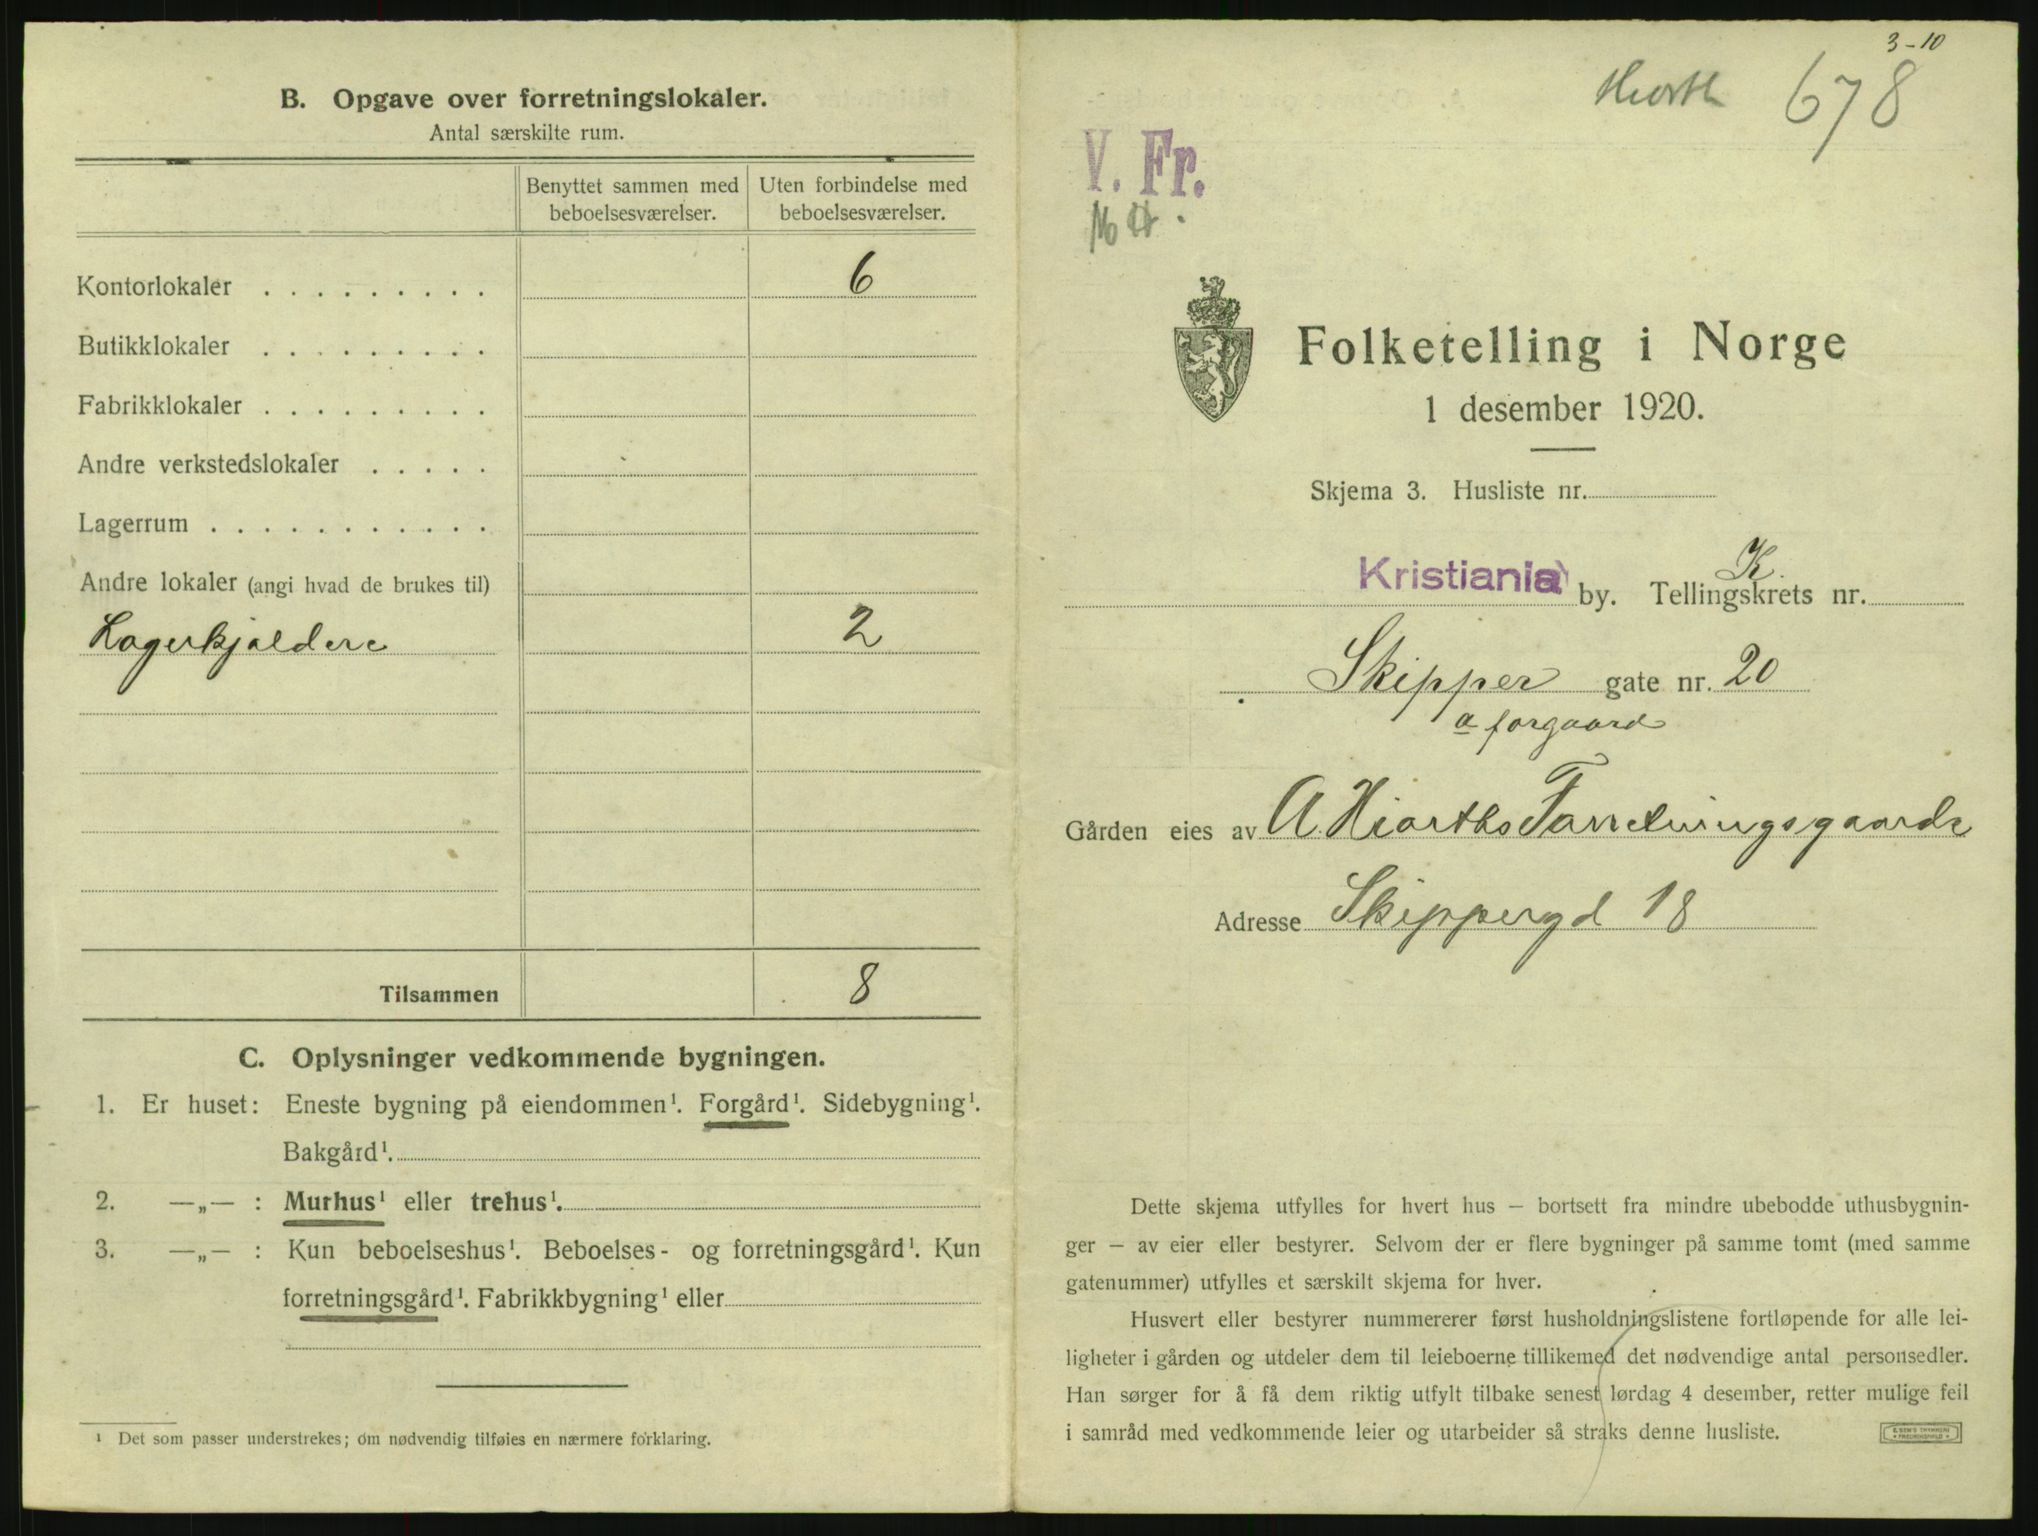 B. Opgave over forretningslokaler.
Antal særskilte rum.
Benyttet sammen med beboelsesværelser.
Uten forbindelse med beboelsesværelser.
Kontorlokaler . . . . . . . . . 6
Butikklokaler . . . . . . . . .
Fabrikklokaler . . . . . . . . .
Andre verkstedslokaler . . . . .
Lagerrum . . . . . . . . . . .
Andre lokaler (angi hvad de brukes til)
Lagerkjældere 2
Tilsammen 8
C. Oplysninger vedkommende bygningen.
1. Er huset: Eneste bygning på eiendommen¹. Forgård¹. Sidebygning¹.
Bakgård¹.
2. —„— : Murhus¹ eller trehus¹.
3. —„— : Kun beboelseshus¹. Beboelses- og forretningsgård¹. Kun
forretningsgård¹. Fabrikkbygning¹ eller
¹ Det som passer understrekes; om nødvendig tilføies en nærmere forklaring.
3-10
Hiorth 678
V. Fr.
Folketelling i Norge
1 desember 1920.
Skjema 3. Husliste nr.
Kristiania by. Tellingskrets nr.
K.
Skipper gate nr. 20
a forgaard
Gården eies av A Hiorths Forretningsgaarde
Adresse Skippergd 18
Dette skjema utfylles for hvert hus — bortsett fra mindre ubebodde uthusbygnin-
ger — av eier eller bestyrer. Selvom der er flere bygninger på samme tomt (med samme
gatenummer) utfylles et særskilt skjema for hver.
Husvert eller bestyrer nummererer først husholdningslistene fortløpende for alle lei-
ligheter i gården og utdeler dem til leieboerne tillikemed det nødvendige antal personsedler.
Han sørger for å få dem riktig utfylt tilbake senest lørdag 4 desember, retter mulige feil
i samråd med vedkommende leier og utarbeider så straks denne husliste.